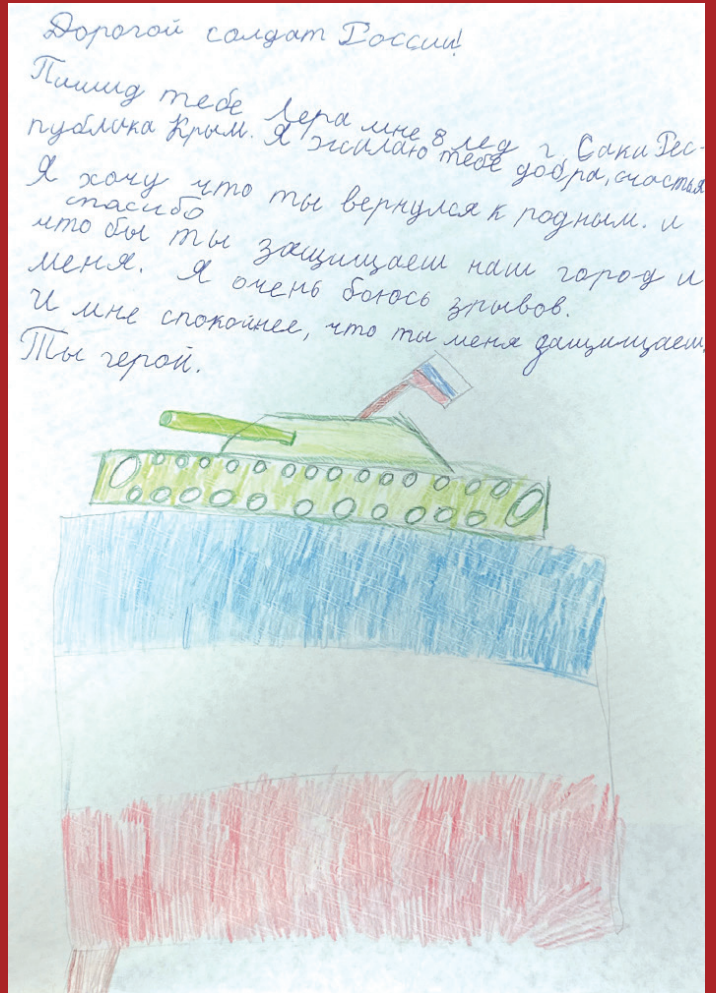 Дорогой солдат России!
Пишид тебе Лера мне 8 лед г. Саки Рес-
публика Крым. Я жилаю тебе добра, счастья
Я хочу что ты вернулся к родным. и
спасибо
что бы ты защищаеш наш город и
меня. Я очень боюсь зрывов.
И мне спокойнее, что ты меня дащищаеш.
Ты герой.